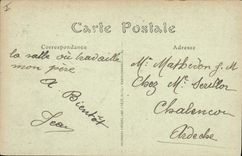 Carte Postale
Correspondance
Adresse
la salle où travaille
mon père
A Bientôt
Jean
Mr Mathedon
Chez Mr
Chalencon
Ardèche